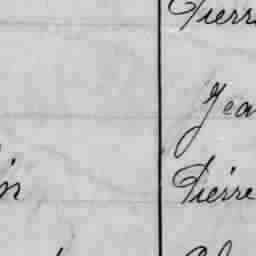 Pierre
Jea
in
Pierre